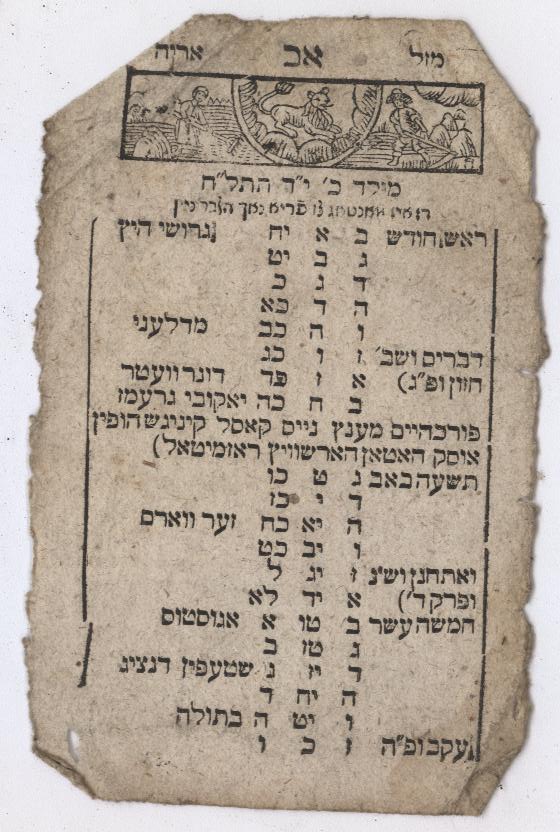 מזל אב אריה
מולד ב' י"ד התל"ח
פריא נאך
ראש חודש ב א יח גרושי היץ
ג ב יט
ד ג כ
ה ד כא
ו ה כב מדלעני
דברים ושב' ז ו כג
חזון ופ"ג) א ז פד דונר וועטר
ב ח כה יאקובי גרעמז
פורכהיים מענץ נייס קאסל קיניגש הופין
אוסק האטאן הארשוויץ ראזמיטאל)
תשעה באב ג ט כו
ד י כז
ה יא כח זער ווארם
ו יב כט
ואתחנן וש"נ ז יג ל
ופרק ד') א יד לא
חמשה עשר ב טו א אגוסטוס
ג טז ב
ד יז ג שטעפין דנציג
ה יח ד
ו יט ה בתולה
עקב ופ"ה ז כ ו